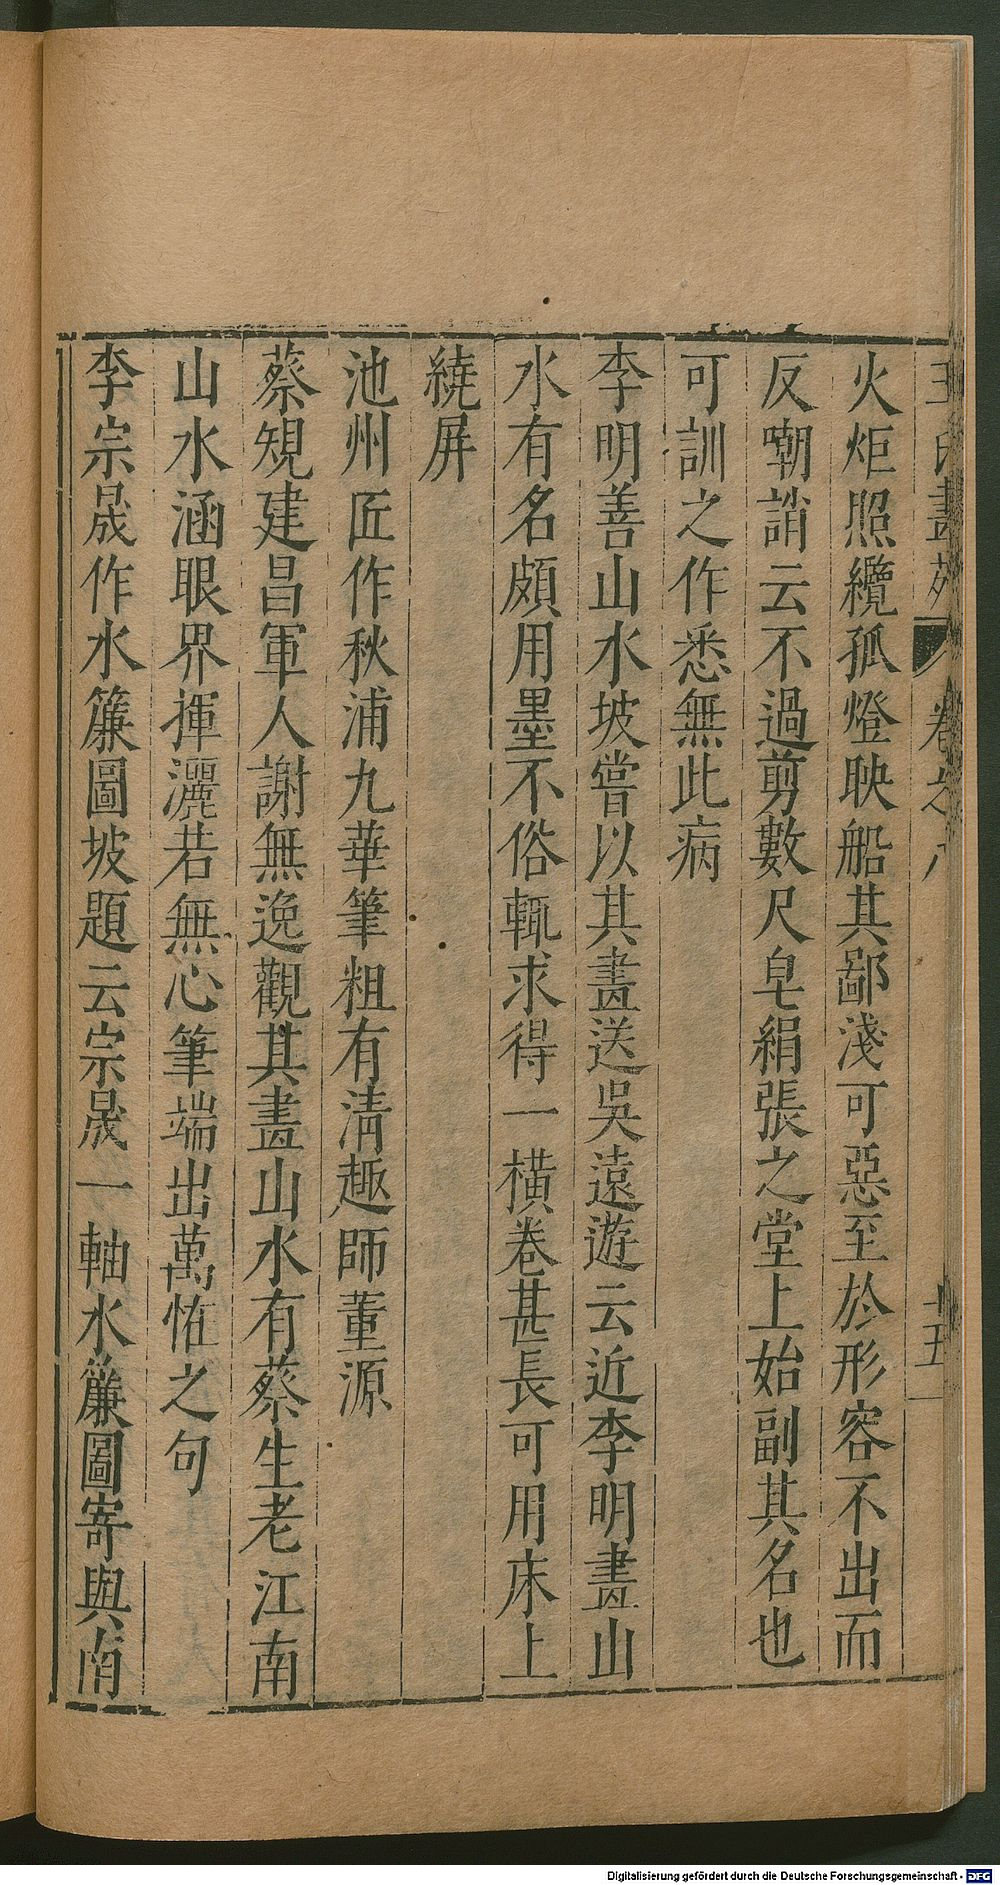 王氏畫苑 卷之八 十五
火炬照纜孤燈映船其鄙淺可惡至於形容不出而
反嘲誚云不過剪數尺皂絹張之堂上始副其名也
可訓之作悉無此病
李明善山水坡嘗以其畫送吳遠遊云近李明畫山
水有名頗用墨不俗輒求得一橫卷甚長可用床上
繞屏
池州匠作秋浦九華筆粗有清趣師董源
蔡規建昌軍人謝無逸觀其畫山水有蔡生老江南
山水涵眼界揮灑若無心筆端出萬恠之句
李宗晟作水簾圖坡題云宗晟一軸水簾圖寄與南
Digitalisierung gefördert durch die Deutsche Forschungsgemeinschaft - DFG